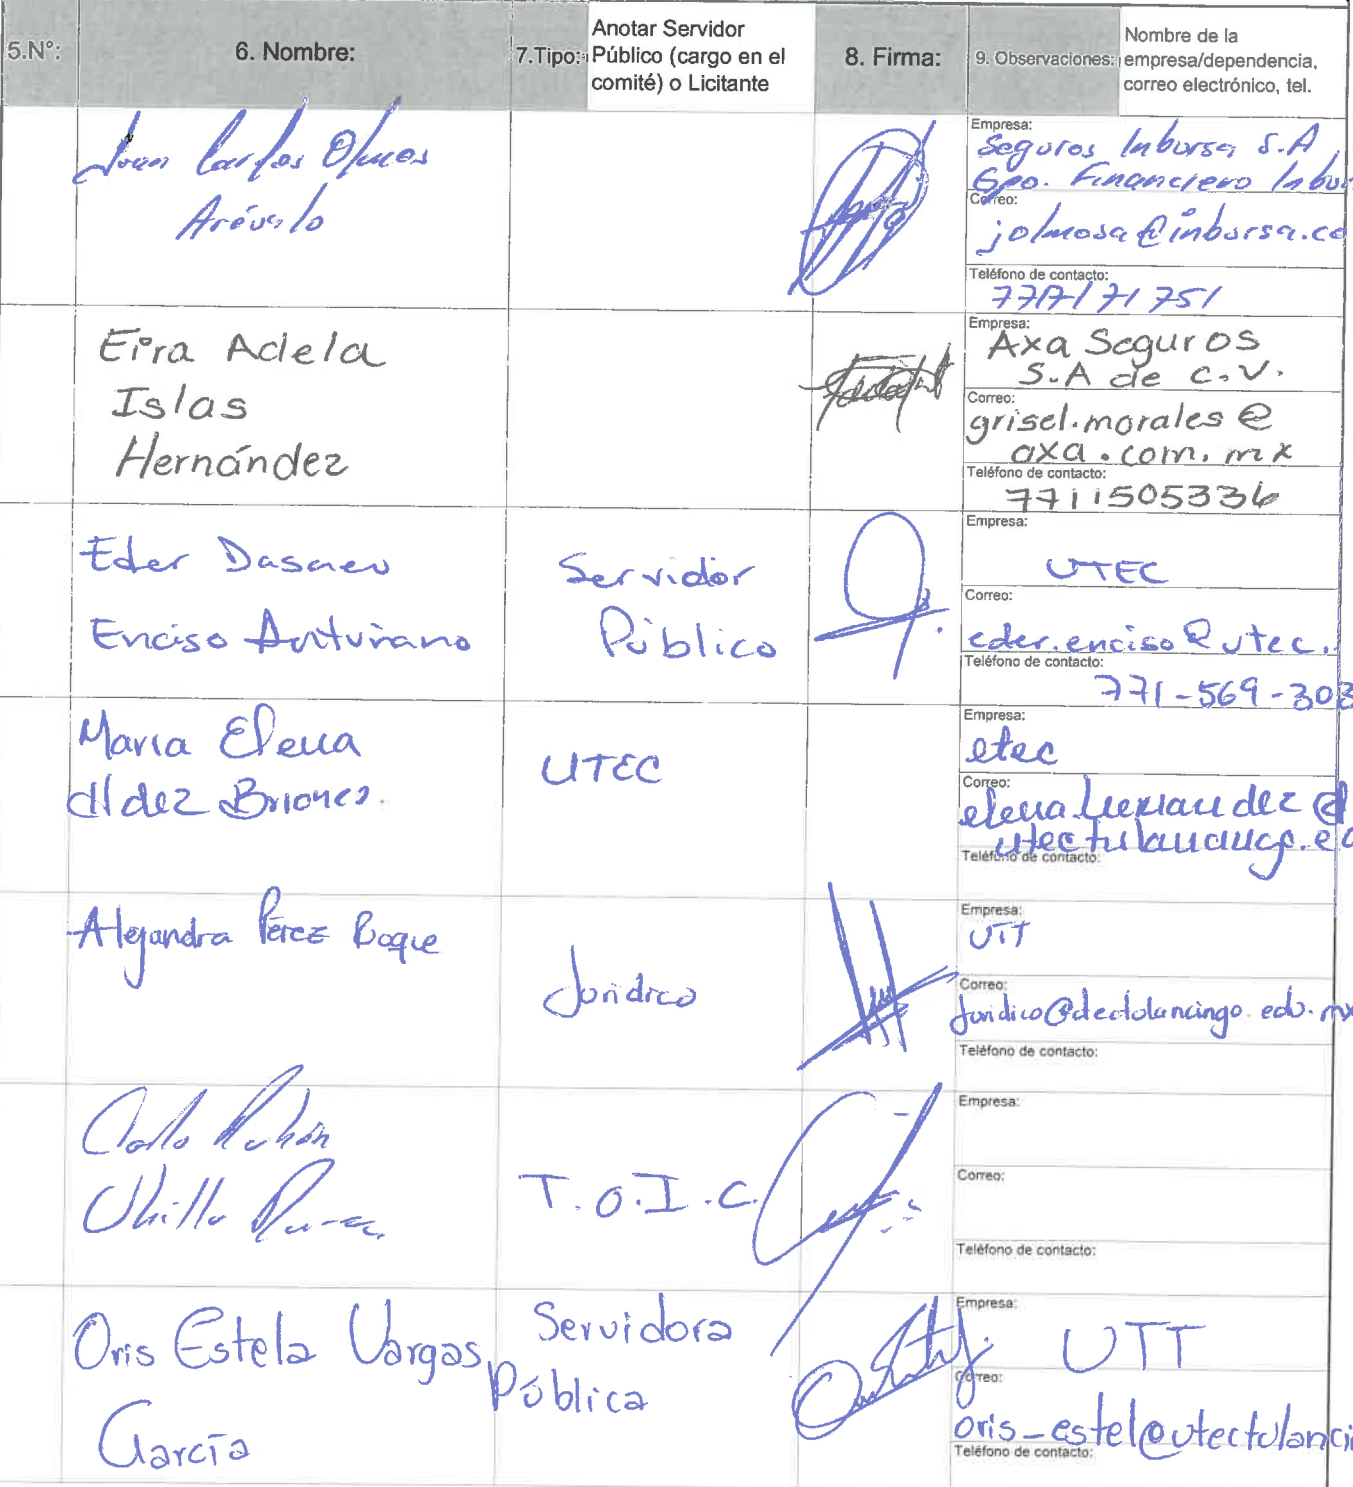 5.N°:
6. Nombre:
7.Tipo:
Anotar Servidor
Público (cargo en el
comité) o Licitante
8. Firma:
9. Observaciones:
Nombre de la
empresa/dependencia,
correo electrónico, tel.
Juan Carlos Olmos
Arévalo
Empresa:
Seguros Inbursa S.A
Gpo. Financiero Inbur
Correo:
jolmosa@inbursa.co
Teléfono de contacto:
Eira Adela
Islas
Hernández
Empresa:
Axa Seguros
S.A de C.V.
Correo:
grisel.morales@
axa.com.mx
Teléfono de contacto:
7711505336
Eder Dasaev
Enciso
Servidor
Público
Empresa:
UTEC
Correo:
eder.enciso@utec.
Teléfono de contacto:
771-569-303
Maria Elena
Hdez Briones.
UTEC
Empresa:
utec
Correo:
elena.hernandez@
utectulancingo.ed
Teléfono de contacto:
Alejandra Pérez Boque
Jurídico
Empresa:
UTT
Correo:
juridico@utectulancingo.edu.mx
Teléfono de contacto:
T.O.I.C.
Empresa:
Correo:
Teléfono de contacto:
Oris Estela Vargas
García
Servidora
Pública
Empresa:
UTT
Correo:
oris_estel@utectulanci
Teléfono de contacto: